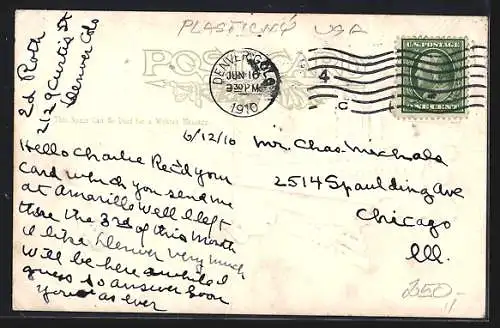 PLASTICKÝ USA
Ed Roth
2129 Curtis St
Denver Colo
POST CARD
DENVER COLO.
JUN 10
3 30 PM
1910
4
C
U.S. POSTAGE
ONE CENT
This Space Can Be Used for a Written Message
6/12/10
Hello Charlie Rec'd your
Card which you send me
at Amarillo Well I left
there the 3rd of this month
I like Denver very much
Will be here awhile I
guess so answer soon
Your as ever
Mr. Chas. Michals
2514 Spaulding Ave
Chicago
Ill.
350-